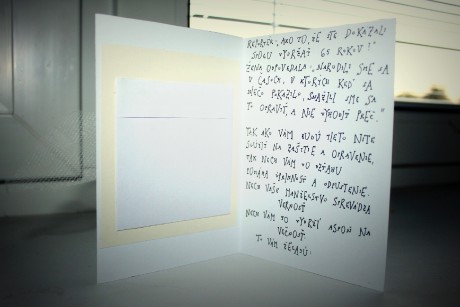 REPORTÉR: „AKO TO, ŽE STE DOKÁZALI
SPOLU VYDRŽAŤ 65 ROKOV?"
ŽENA ODPOVEDALA: „NARODILI SME SA
V ČASOCH, V KTORÝCH KEĎ SA
NIEČO POKAZILO, SNAŽILI SME SA
TO OPRAVIŤ, A NIE VYHODIŤ PREČ."
TAK AKO VÁM BUDÚ TIETO NITE
SLÚŽIŤ NA ZAŠITIE A OPRAVENIE,
TAK NECH VÁM VO VZŤAHU
POMÁHA ÚPRIMNOSŤ A ODPUSTENIE.
NECH VAŠE MANŽELSTVO SPREVÁDZA
VERNOSŤ
NECH VÁM TO VYDRŽÍ ASPOŇ NA
VEČNOSŤ
TO VÁM ŽELAJÚ: